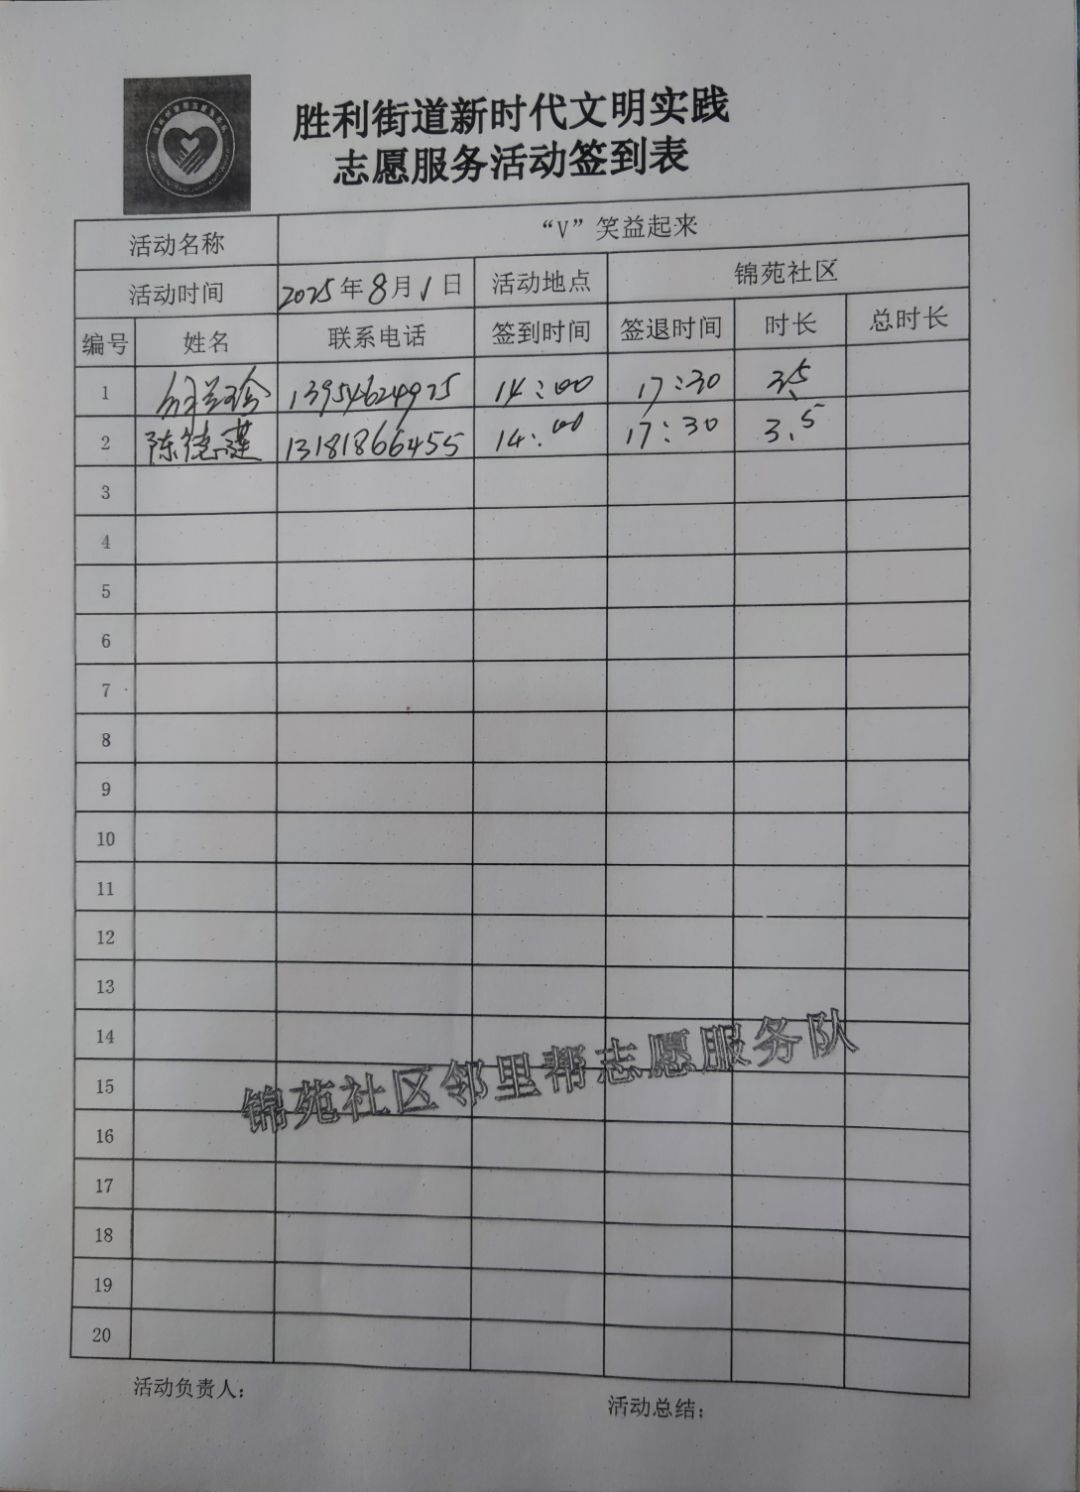 胜利街道新时代文明实践
志愿服务活动签到表
活动名称 “V”笑益起来
活动时间 2025年8月1日 活动地点 锦苑社区
编号 姓名 联系电话 签到时间 签退时间 时长 总时长
1 13954624925 14:00 17:30 3.5
2 陈德 13181866455 14:00 17:30 3.5
3
4
5
6
7
8
9
10
11
12
13
14
15
16
17
18
19
20
锦苑社区邻里帮志愿服务队
活动负责人:
活动总结: